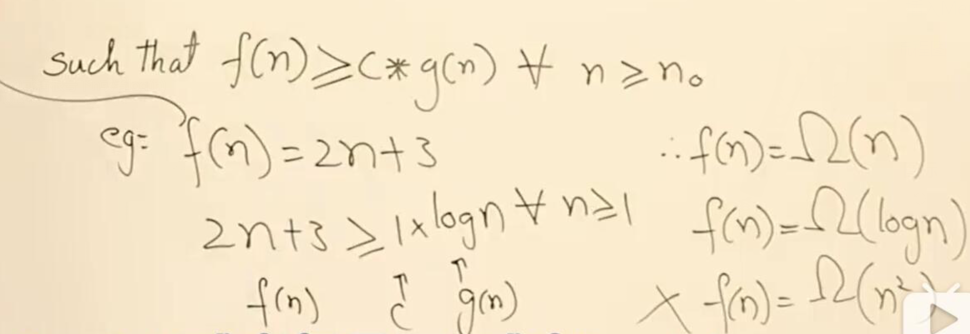 such that f(n) ≥ c * g(n) ∀ n ≥ n₀
eg:- f(n) = 2n+3
∴ f(n) = Ω(n)
2n+3 ≥ 1 × log n ∀ n ≥ 1
f(n) = Ω(log n)
f(n) ↑ c ↑ g(n)
× f(n) = Ω(n²)